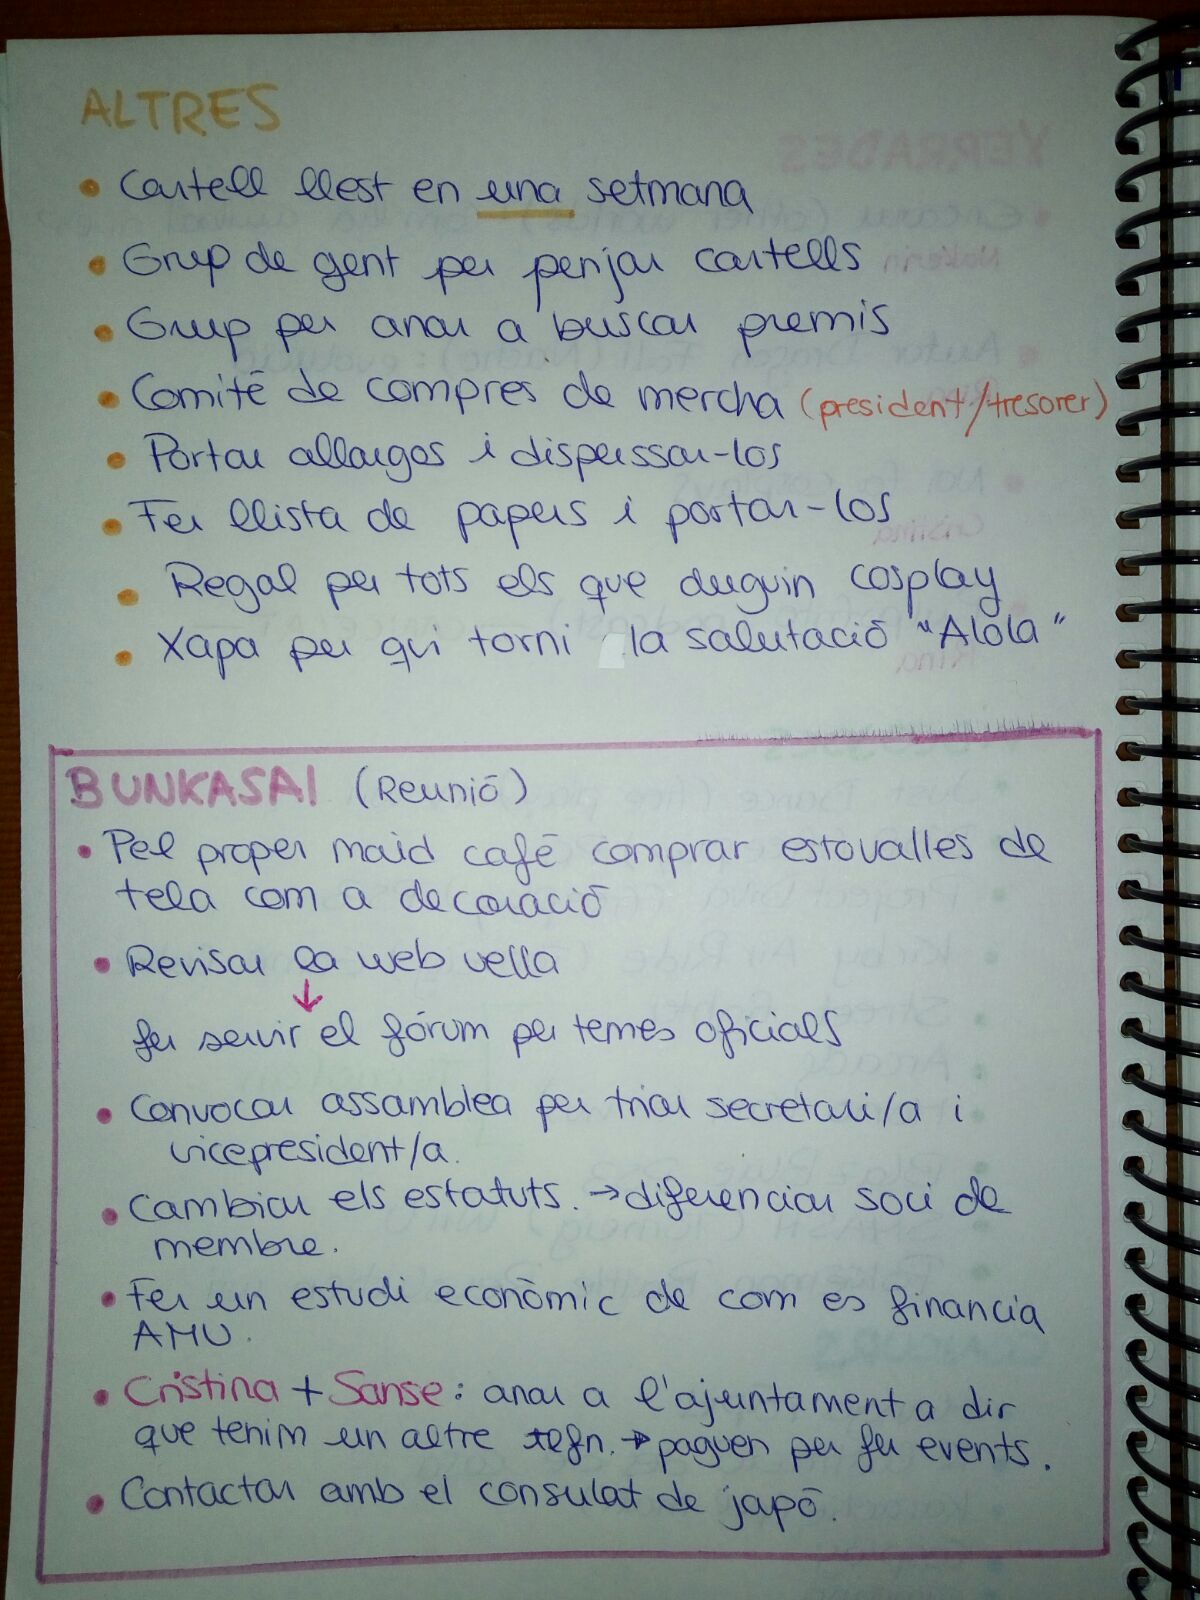 ALTRES
• Cartell llest en una setmana
• Grup de gent per penjar cartells
• Grup per anar a buscar premis
• Comité de compres de mercha (president/tresorer)
• Portar allargos i dispersar-los
• Fer llista de papers i portar-los
• Regal per tots els que duguin cosplay
• Xapa per qui torni la salutació "Alola"
BUNKASAI (Reunió)
• Pel proper maid café comprar estovalles de
tela com a decoració
• Revisar la web vella
↓
fer servir el fórum per temes oficials
• Convocar assamblea per triar secretari/a i
vicepresident/a.
• Cambiar els estatuts. → diferenciar soci de
membre.
• Fer un estudi econòmic de com es financia
AMU.
• Cristina + Sanse: anar a l'ajuntament a dir
que tenim un altre tefn. → paguen per fer events.
• Contactar amb el consulat de japó.